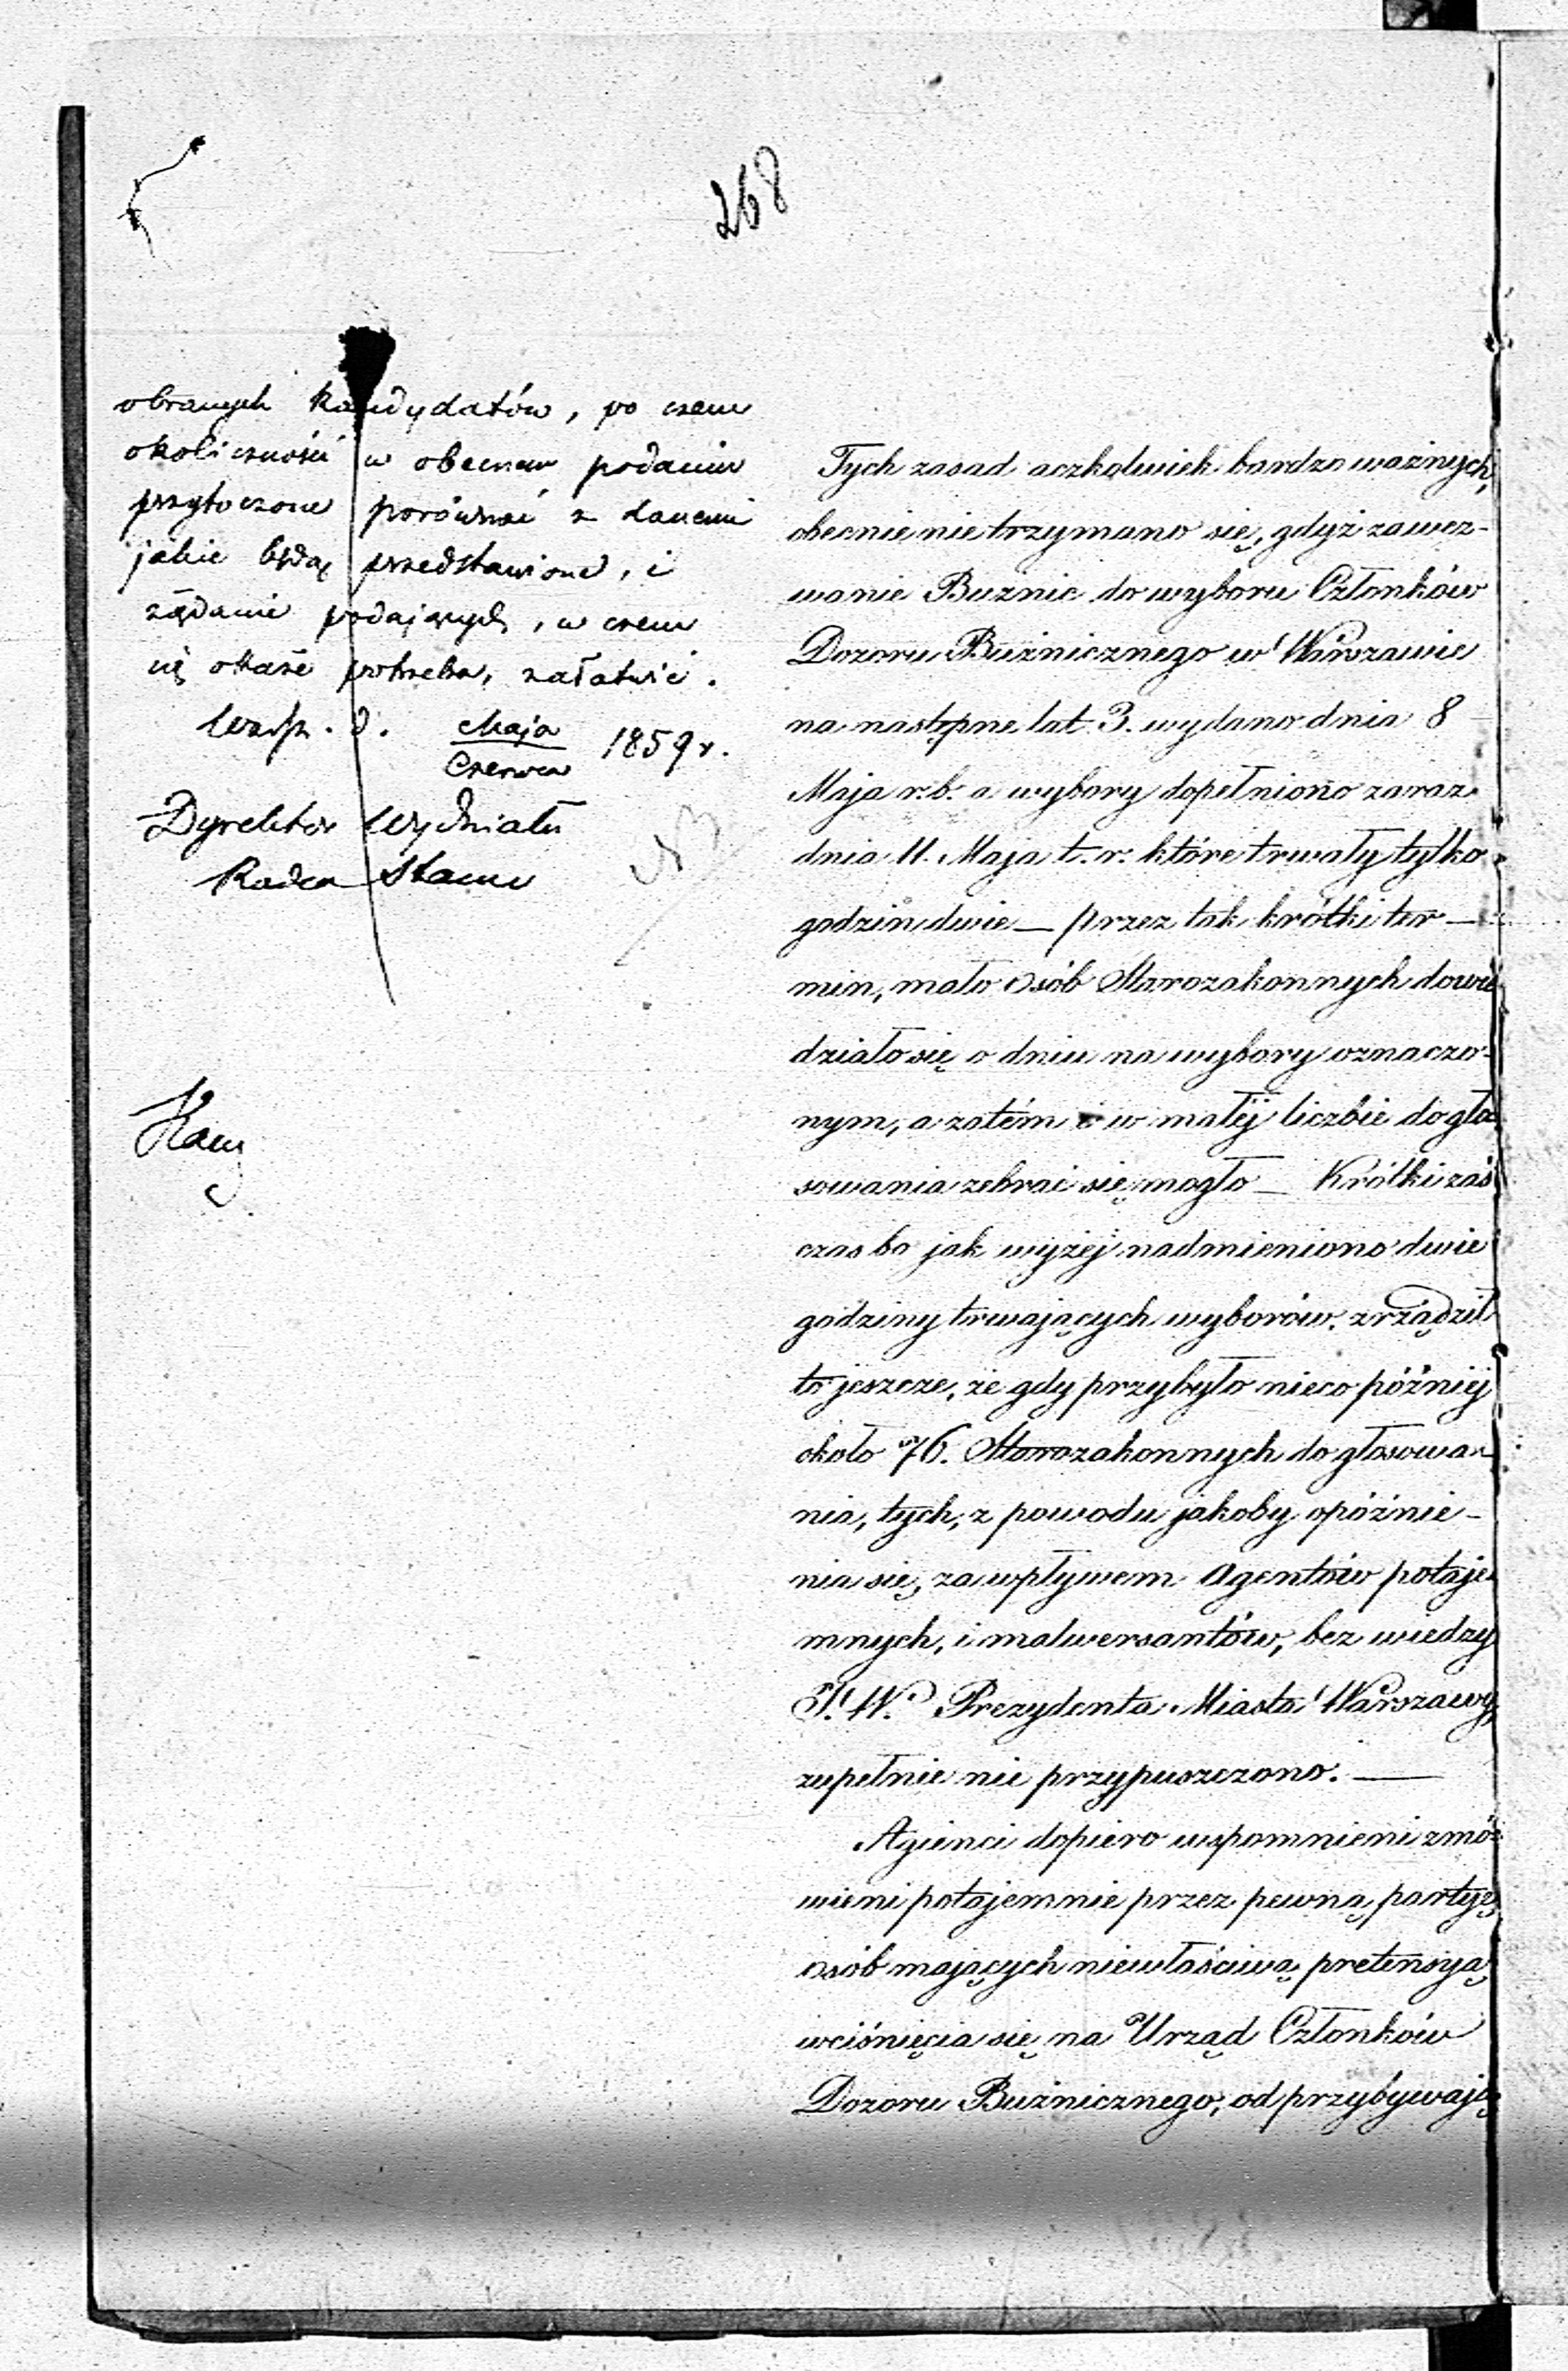 268
obranych kandydatów, po czem
okoliczności w obecnem podaniu
przytoczone porównać z danemi
jakie będą przedstawione, i
żądanie podających, w czem
się okaże potrzeba, załatwić.
d. Maja
Czerwca 1859 r.
Dyrektor Wydziału
Radca Stanu
Tych zasad aczkolwiek bardzo ważnych,
obecnie nie trzymano się, gdyż zawez-
wanie Buznic do wyboru Członków
Dozoru Buźnicznego w Warszawie
na następne lat 3. wydano dnia 8
Maja r. b. a wybory dopełniono zaraz
dnia 11. Maja t. r. które trwały tylko
godzin dwie — przez tak krótki ter —
min, mało osób Starozakonnych dowie
działo się o dniu na wybory oznaczo-
nym, a zatém i w małéj liczbie do gło
sowania zebrać się mogło — Krótki zaś
czas bo jak wyżéj nadmieniono dwie
godziny trwających wyborów. zrządził
to jeszcze, że gdy przybyło nieco późniéj
około 76. Starozakonnych do głosowa-
nia, tych, z powodu jakoby opóźnie-
nia się, za wpływem Agentów potaje
mnych, i malwersantów, bez wiedzy
J. W. Prezydenta Miasta Warszawy,
zupełnie nie przypuszczono. —
Agienci dopiero wspomnieni zmó-
wieni potajemnie przez pewną partyę
osób mających niewłaściwą pretensyą
wciśnięcia się na Urząd Członków
Dozoru Buźnicznego, od przybywają